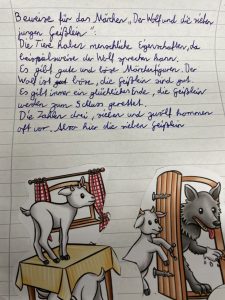 Beweise für das Märchen „Der Wolf und die sieben
jungen Geißlein":
Die Tiere haben menschliche Eigenschaften, da
beispielsweise der Wolf sprechen kann.
Es gibt gute und böse Märchenfiguren. Der
Wolf ist böse, die Geißlein sind gut.
Es gibt immer ein glückliches Ende, die Geißlein
werden zum Schluss gerettet.
Die Zahlen drei, sieben und zwölf kommen
oft vor. Also hier die sieben Geißlein